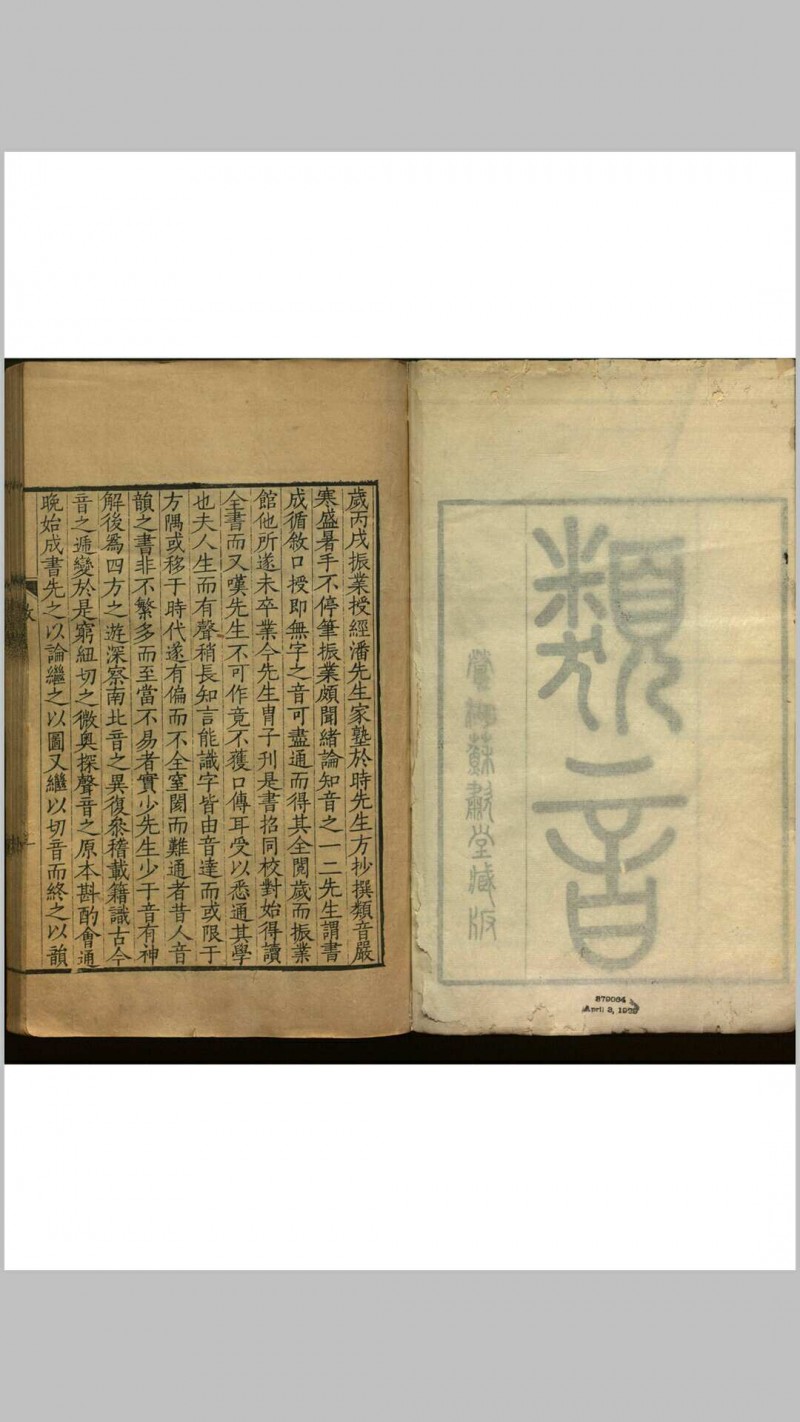 類音
堂藏版
879064
April 3,
歲丙戌振業授經潘先生家塾於時先生方抄撰類音嚴
寒盛暑手不停筆振業頗聞緒論知音之一二先生謂書
成循敘口授即無字之音可盡通而得其全閱歲而振業
館他所遂未卒業今先生胄子刊是書招同校對始得讀
全書而又嘆先生不可作竟不獲口傳耳受以悉通其學
也夫人生而有聲稍長知言能識字皆由音達而或限于
方隅或移于時代遂有偏而不全室閡而難通者昔人音
韻之書非不繁多而至當不易者實少先生少于音有神
解後爲四方之遊深察南北音之異復叅稽載籍識古今
音之遞變於是窮紐切之微奥探聲音之原本斟酌會通
晚始成書先之以論繼之以圖又繼以切音而終之以韻